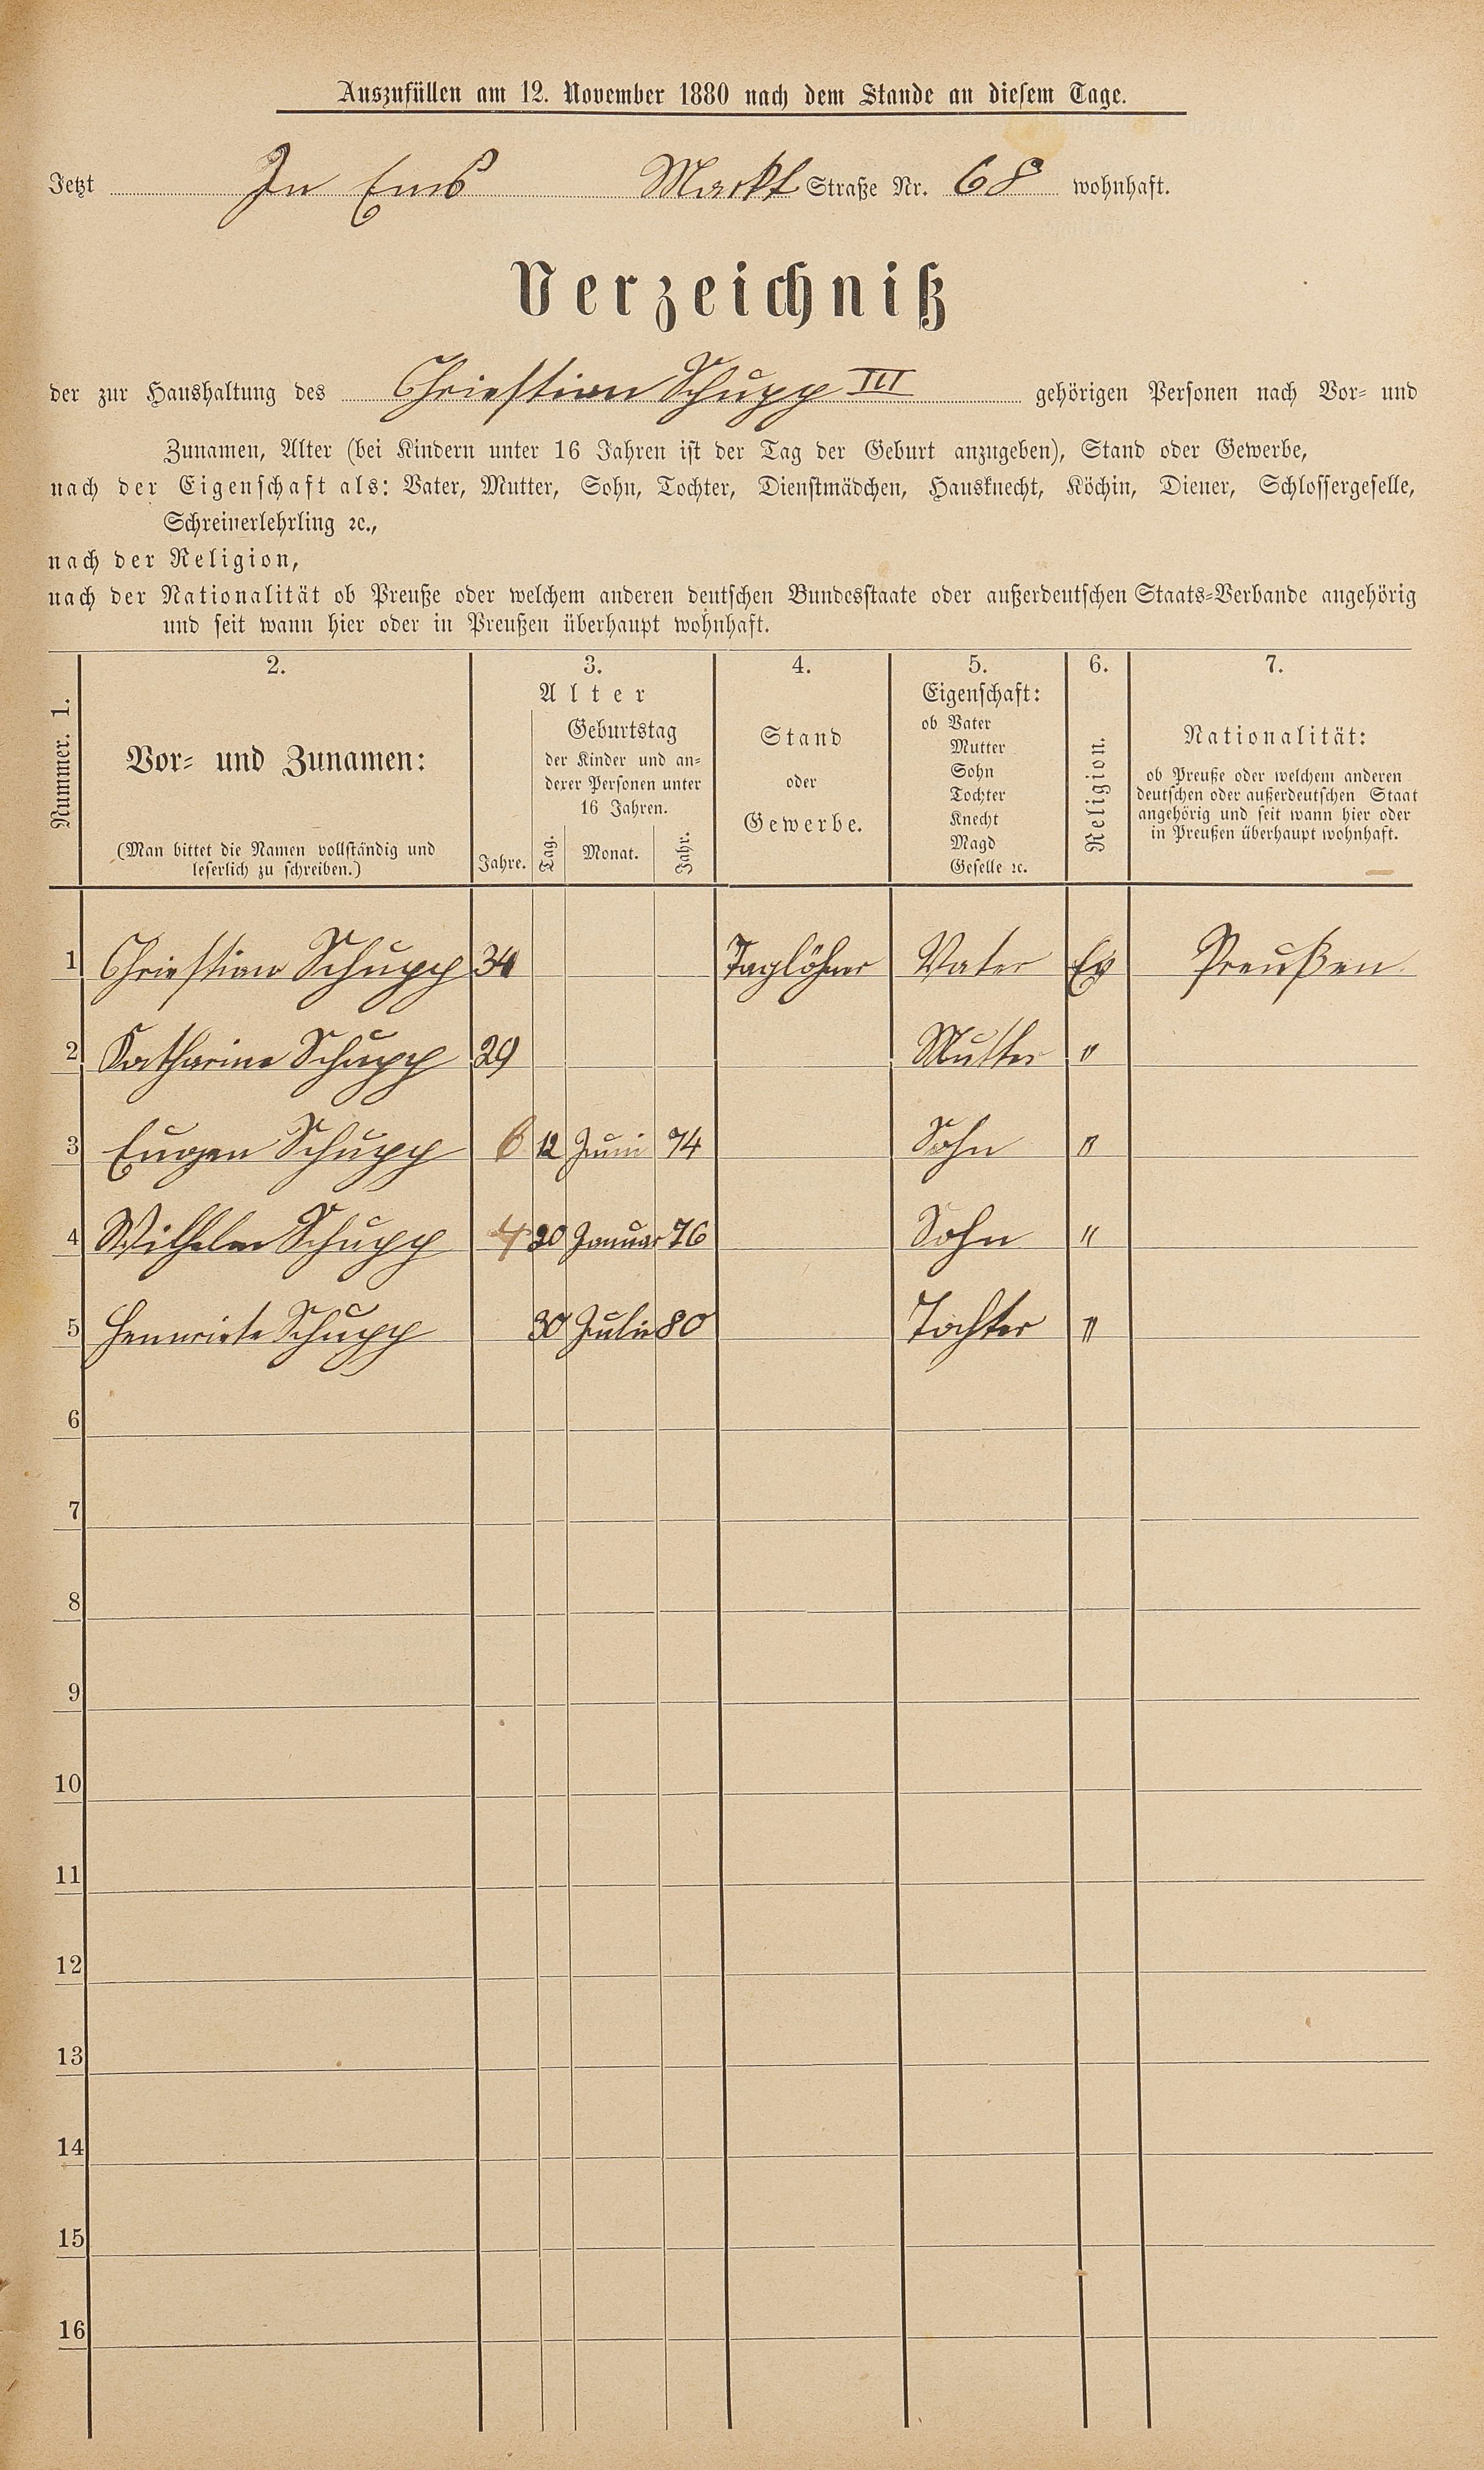 Auszufüllen am 12. November 1880 nach dem Stande an diesem Tage.
Jetzt In Ems Markt Straße Nr. 68 wohnhaft.
Verzeichniß
der zur Haushaltung des Chriestian Schupp III gehörigen Personen nach Vor- und
Zunamen, Alter (bei Kindern unter 16 Jahren ist der Tag der Geburt anzugeben), Stand oder Gewerbe,
nach der Eigenschaft als: Vater, Mutter, Sohn, Tochter, Dienstmädchen, Hausknecht, Köchin, Diener, Schlossergeselle,
Schreinerlehrling ꝛc.,
nach der Religion,
nach der Nationalität ob Preuße oder welchem anderen deutschen Bundesstaate oder außerdeutschen Staats-Verbande angehörig
und seit wann hier oder in Preußen überhaupt wohnhaft.
Nummer. 1.
2.
Vor- und Zunamen:
(Man bittet die Namen vollständig und
leserlich zu schreiben.)
3.
Alter
Jahre.
Geburtstag
der Kinder und an-
derer Personen unter
16 Jahren.
Tag. Monat. Jahr.
4.
Stand
oder
Gewerbe.
5.
Eigenschaft:
ob Vater
Mutter
Sohn
Tochter
Knecht
Magd
Geselle ꝛc.
6.
Religion.
7.
Nationalität:
ob Preuße oder welchem anderen
deutschen oder außerdeutschen Staat
angehörig und seit wann hier oder
in Preußen überhaupt wohnhaft.
1 Chriestian Schupp 34 Taglöhner Vater Ev Preußen
2 Katharina Schupp 29 Mutter "
3 Eugen Schupp 6 12 Juni 74 Sohn "
4 Wilhelm Schupp 4 20 Januar 76 Sohn "
5 Hennriete Schupp 30 Julie 80 Tochter "
6
7
8
9
10
11
12
13
14
15
16